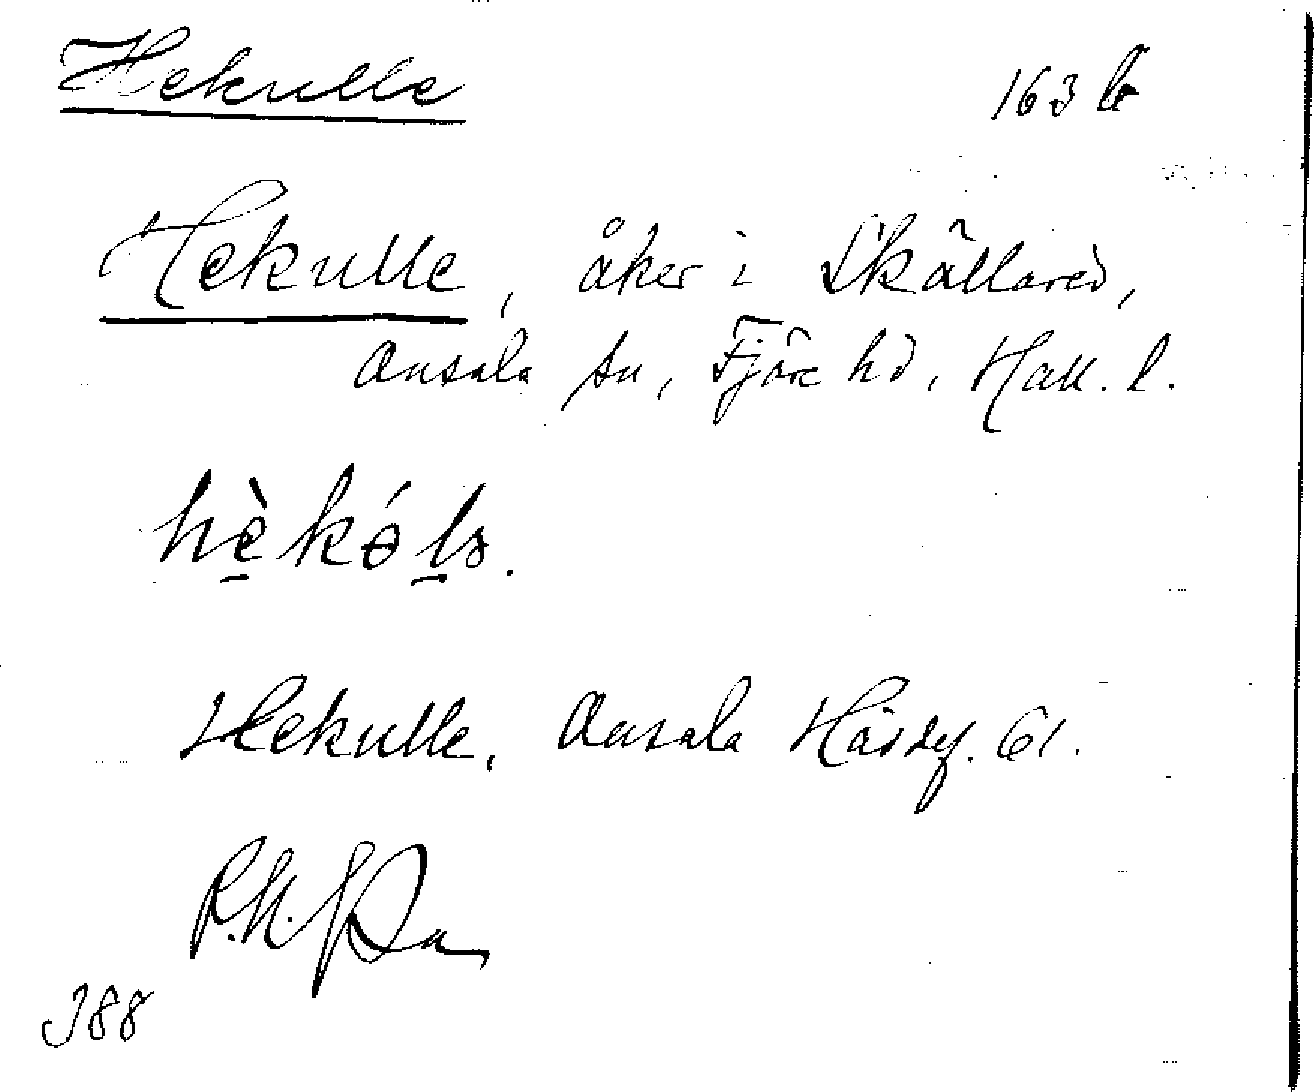 Hekulle 163 b
Hekulle, åker i Skällared,
Onsala sn, Fjäre hd, Hall. l.
hèkóls.
Hekulle, Onsala
61.
388